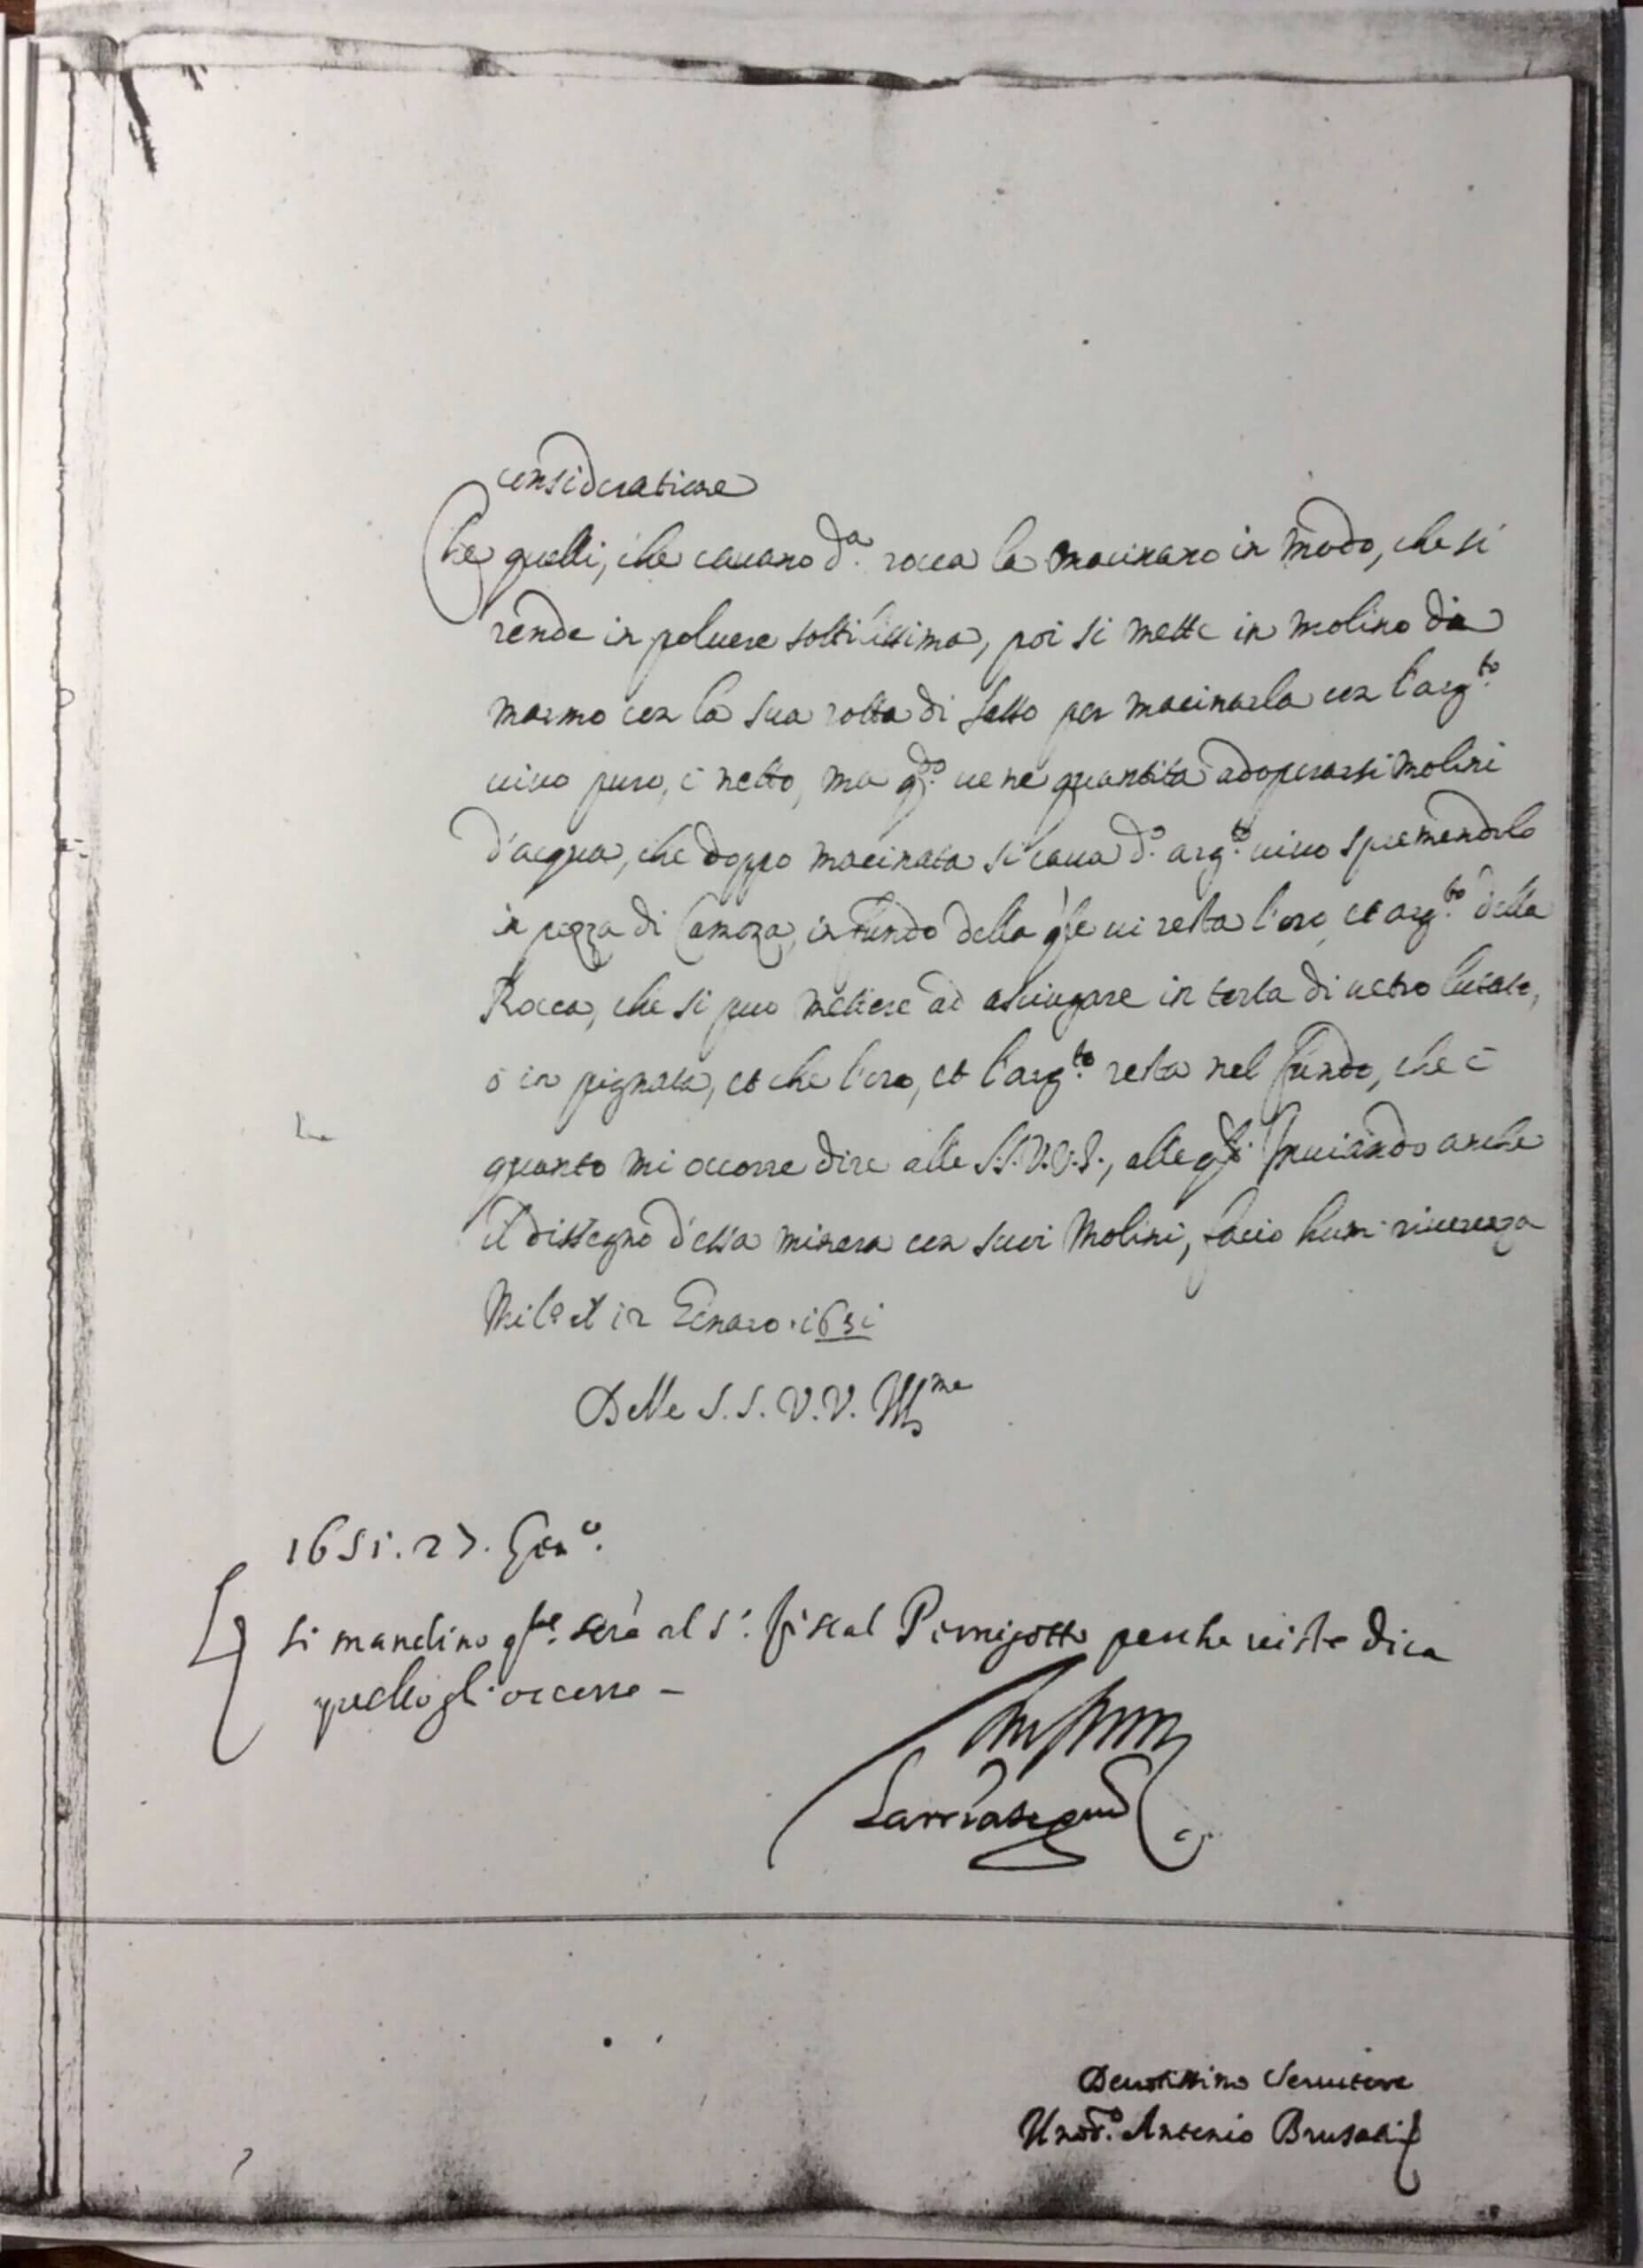 consideratione
Che quelli, che cauano d.a rocca la macinano in modo, che si
rende in poluere sottilissima, poi si mette in molino di
marmo con la sua rotta di sasso per macinarla con l'arg.to
uiuo puro, è netto, ma q.do ue ne quantità adoperarsi molini
d'acqua, che doppo macinata si caua d.o arg.to uiuo spremendolo
in pezza di Camoza, in fundo della q̀le ui resta l'oro, et arg.to della
Rocca, che si puo mettere ad asciugare in torta di uetro lutata,
ò in pignata, et che l'oro, et l'arg.to resta nel fundo, che è
quanto mi occorre dire alle S.S.V.V.S., alle q̃li inuiando anche
il dissegno d'essa minera con suoi Molini, faccio hum: riuerenza
Mil.o il 12 Genaro .1651
Delle S.S.V.V. Ill.me
1651. 27. Gen.o.
si mandino q.te serà al s.r fiscal Pirnigotto perche uiste dica
quello gli occorre –
Larriategui
Deuotissimo Seruitore
Antonio Brusati